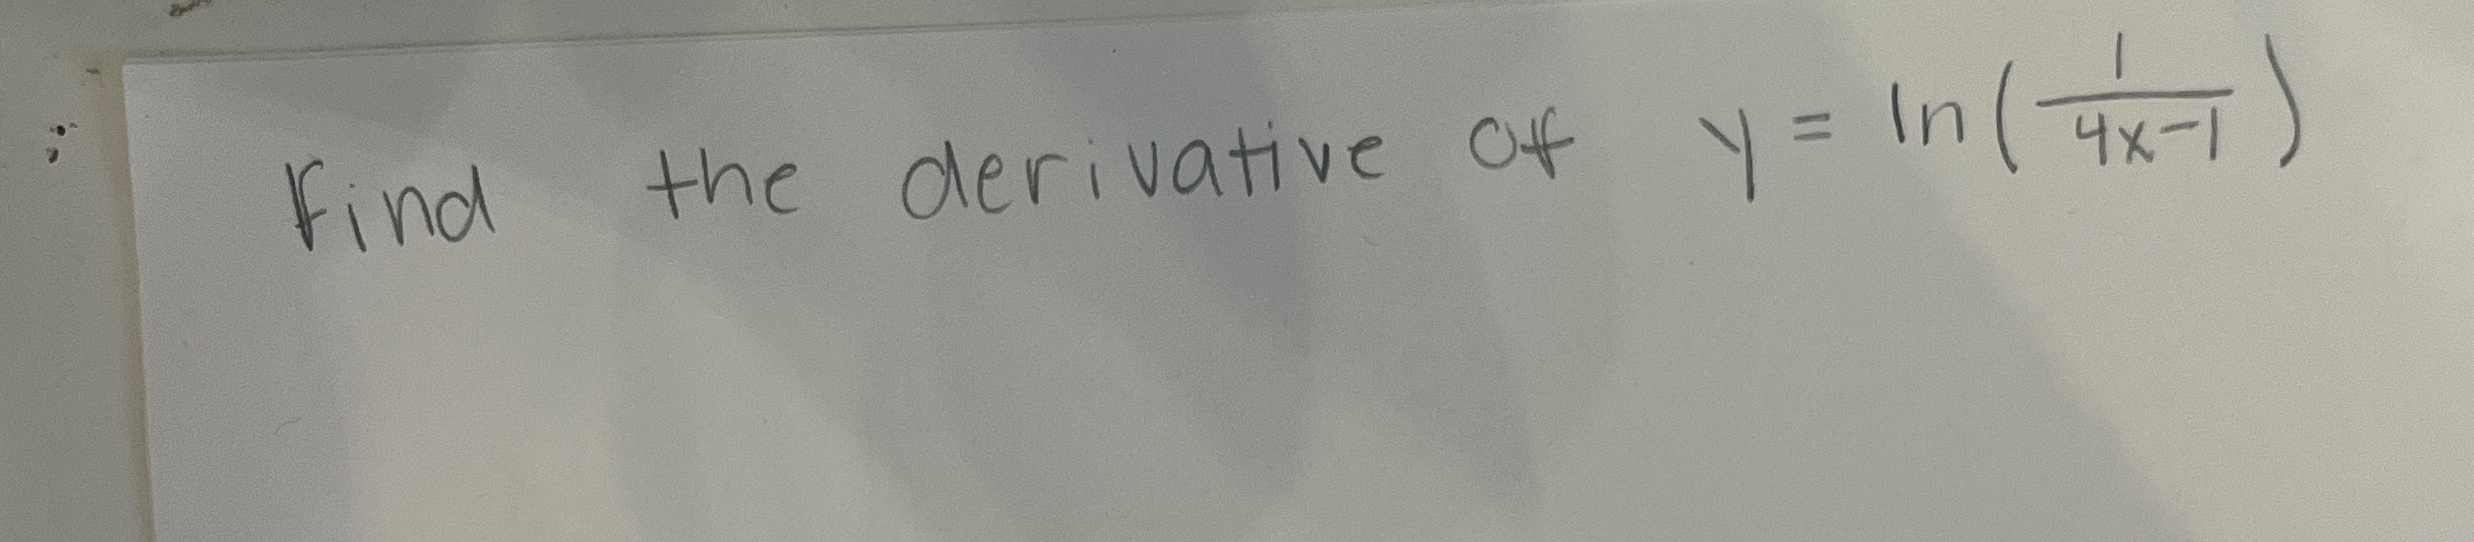 Find the derivative of y = ln(1/(4x-1))